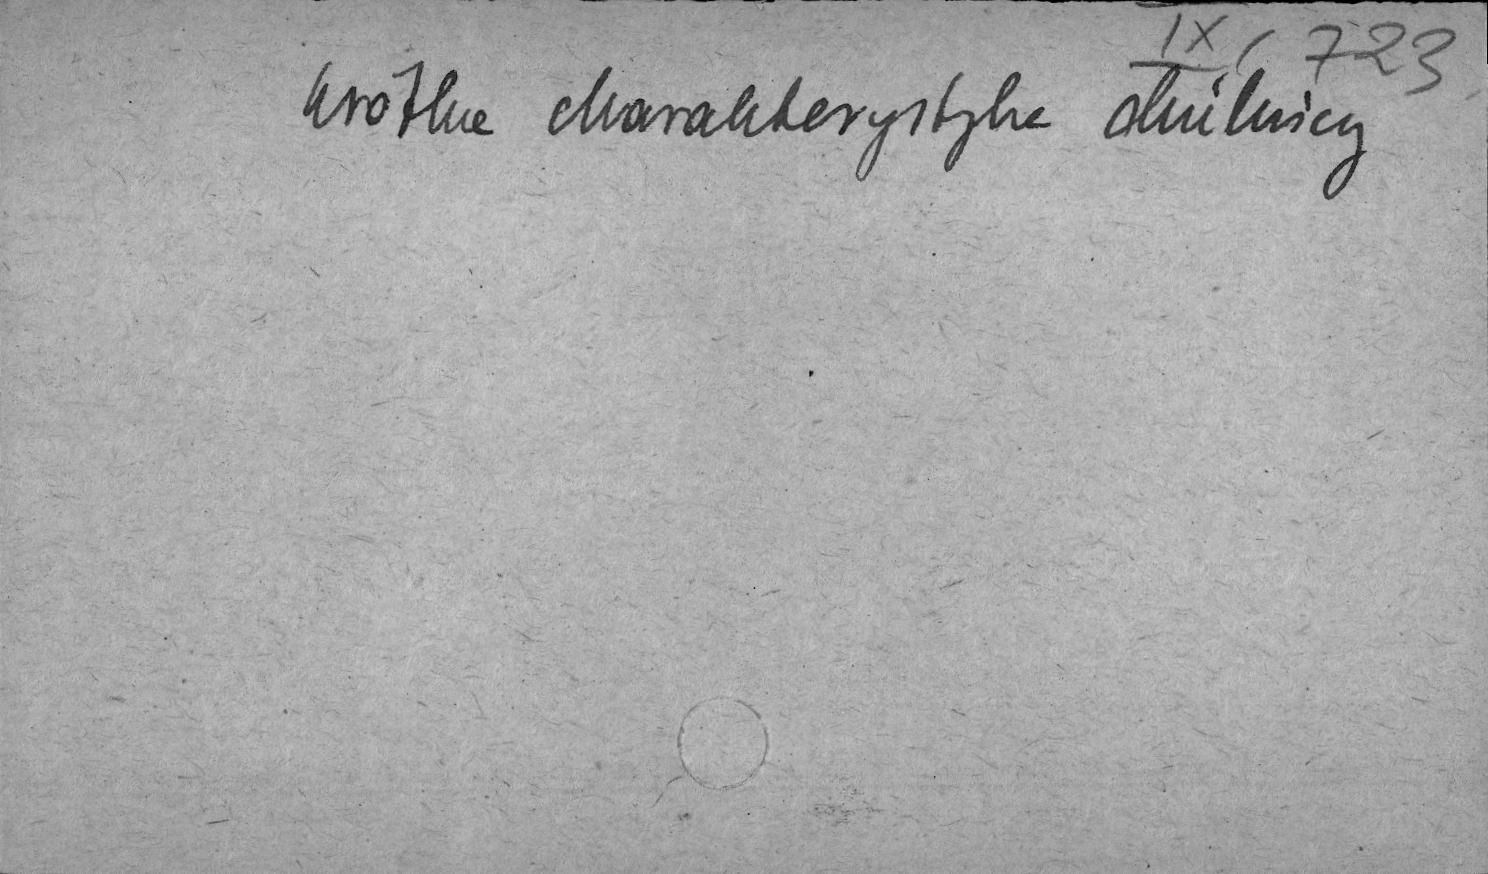 IX, 723
krótka charakterystyka dzielnicy